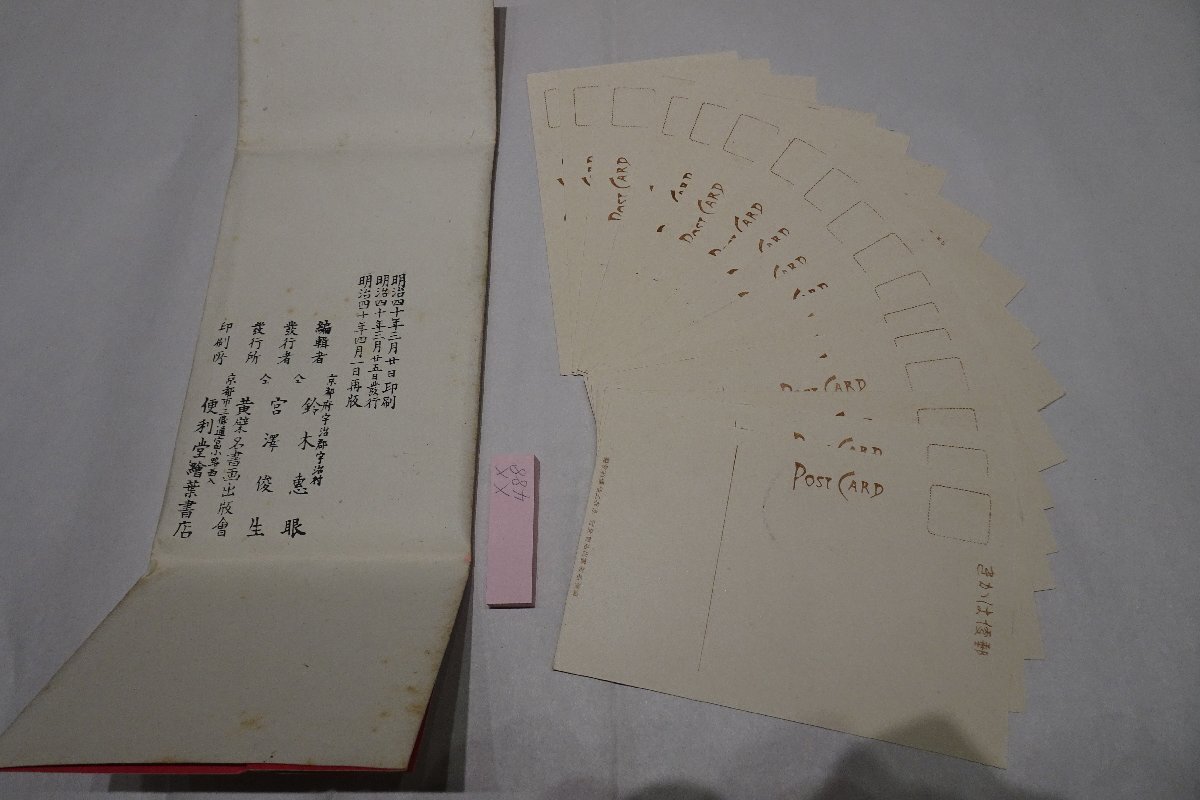 明治四十年三月廿日印刷
明治四十年三月廿五日發行
明治四十年四月一日再版
京都府宇治郡宇治村
編輯者 鈴木惠眼
發行者 仝 宮澤俊生
發行所 仝 黄檗名書画出版會
京都市三條通富小路西入
印刷所 便利堂繪葉書店
488
XX
POST CARD
POST CARD
POST CARD
CARD
CARD
CARD
CARD
CARD
CARD
きかは便郵